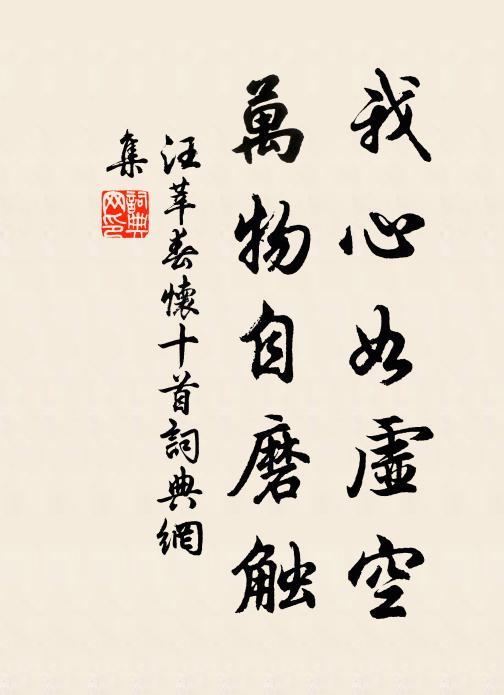 我心如虛空
萬物自磨触
汪莘春懷十首詞典網
集
詞典
网印